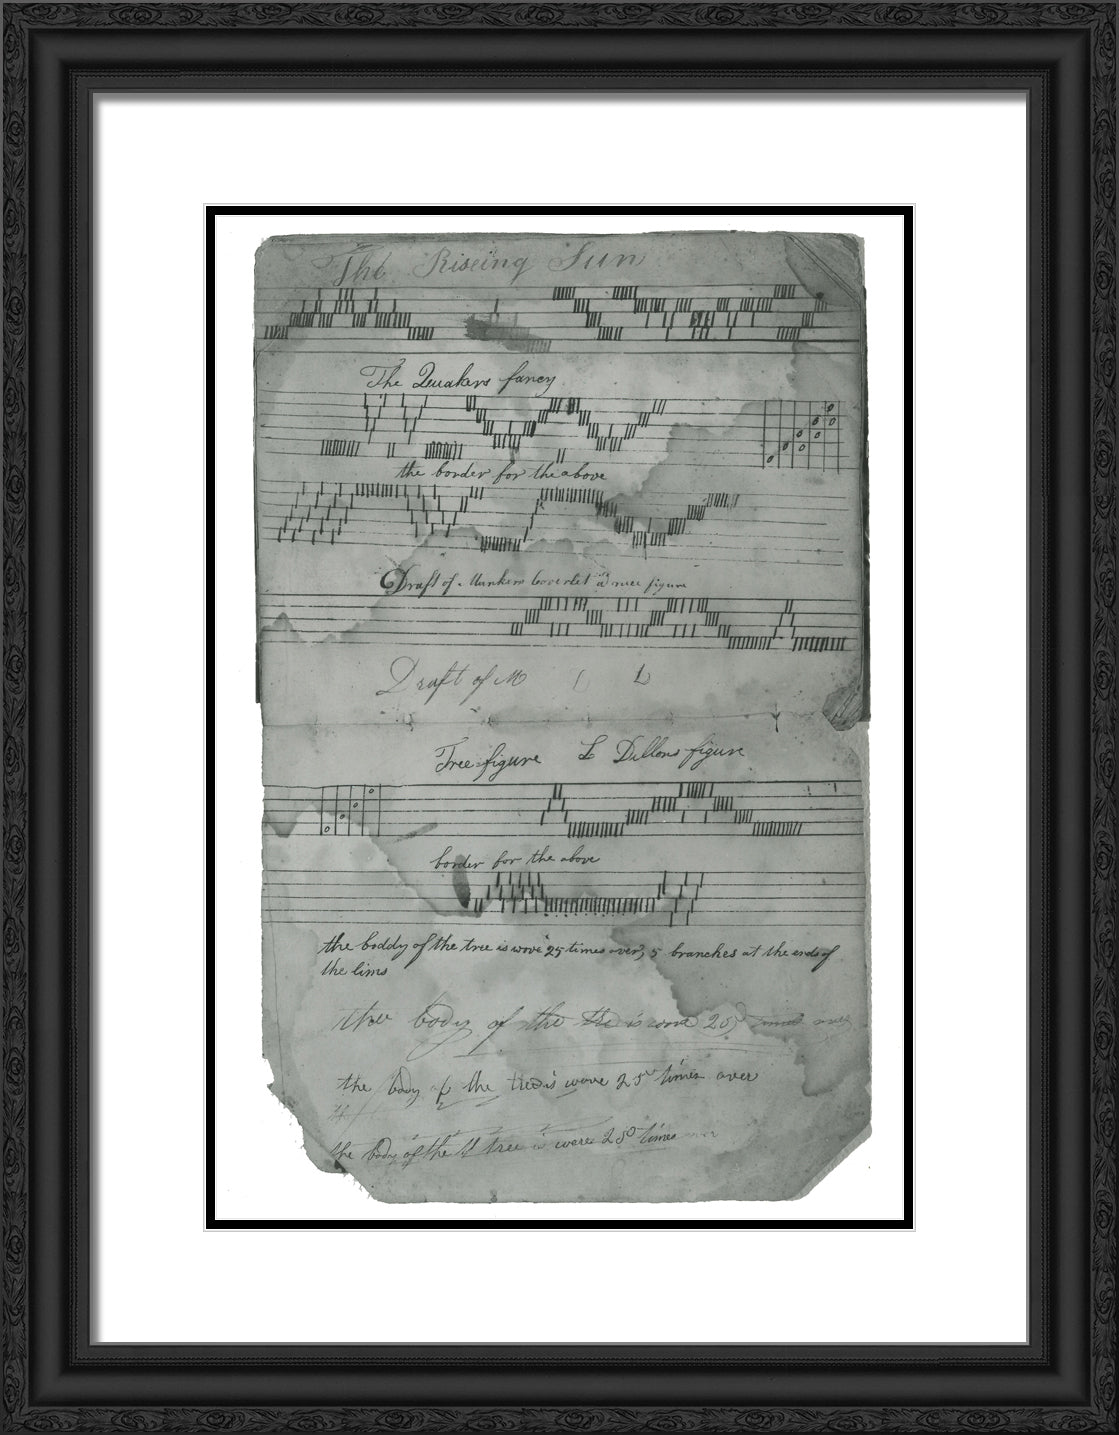 The Riseing Sun
The Quakers fancy
the border for the above
Draft of
Draft of M L
Tree figure L Dillons figure
border for the above
the boddy of the tree is wove 25 times over, 5 branches at the ends of
the lims
the body of the is wove 25
the body of the tree is wove 25 times over
the body of the tree is times